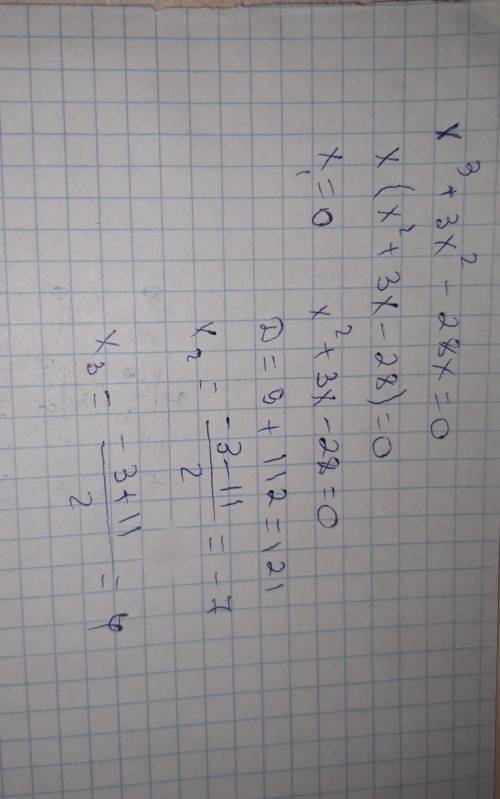 x³ + 3x² - 28x = 0
x (x² + 3x - 28) = 0
x₁ = 0 x² + 3x - 28 = 0
D = 9 + 112 = 121
x₂ = (-3-11)/2 = -7
x₃ = (-3+11)/2 = 4